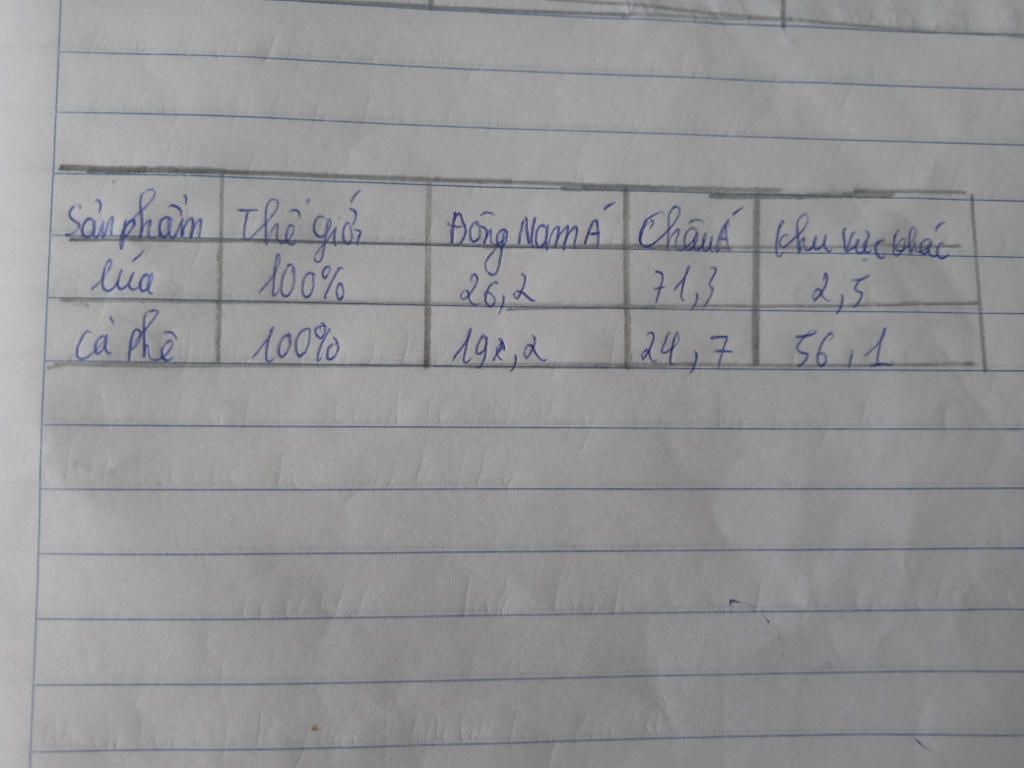 Sản phẩm Thế giới Đông Nam Á Châu Á Khu vực khác
lúa 100% 26,2 71,3 2,5
cà phê 100% 19,2 24,7 56,1